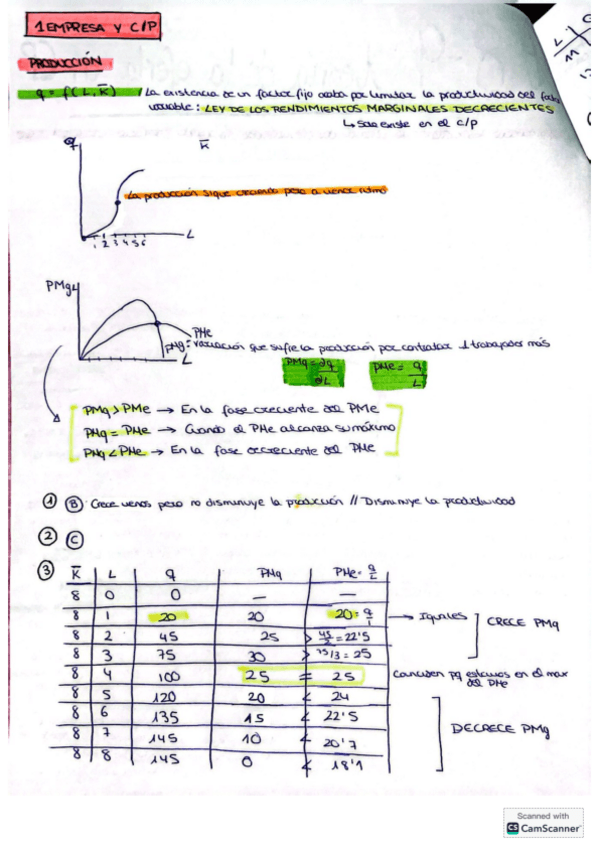 1 EMPRESA Y C/P
PRODUCCIÓN
q = f(L, K̅) La existencia de un factor fijo acaba por limitar la productividad del factor
variable: LEY DE LOS RENDIMIENTOS MARGINALES DECRECIENTES
↳ Solo existe en el c/p
q K̅
La producción sigue creciendo pero a menor ritmo
1 2 3 4 5 6 L
PMgL
PMe
PMg: variación que sufre la producción por contratar 1 trabajador más
L
PMg = ∂q/∂L PMe = q/L
PMg > PMe → En la fase creciente del PMe
PMg = PMe → Cuando el PMe alcanza su máximo
PMg < PMe → En la fase decreciente del PMe
① Ⓑ Crece menos pero no disminuye la producción // Disminuye la productividad
② Ⓒ
③ K̅ L q PMg PMe = q/L
8 0 0 — —
8 1 20 20 20 = q/1 → Iguales
CRECE PMg
8 2 45 25 > 45/2 = 22'5
8 3 75 30 > 75/3 = 25
8 4 100 25 = 25 Coinciden pq estamos en el max
del PMe
8 5 120 20 < 24
8 6 135 15 < 22'5
DECRECE PMg
8 7 145 10 < 20'7
8 8 145 0 < 18'1
Scanned with
CS CamScanner